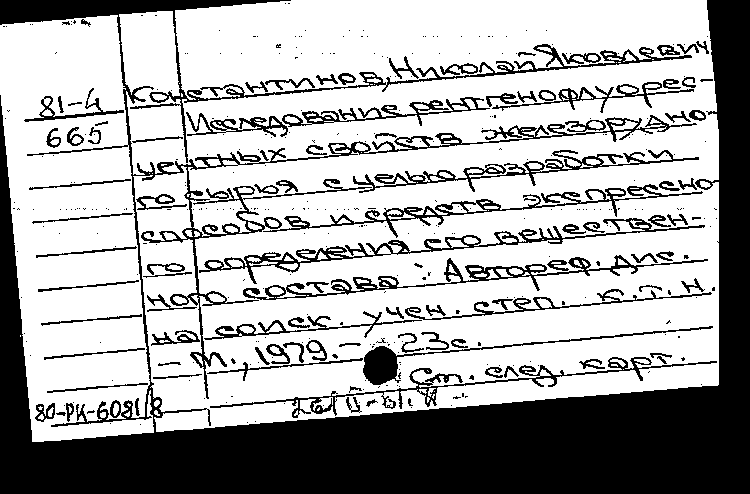 Константинов, Николай Яковлевич
81-4
665
Исследование рентгенофлуорес-
центных свойств железорудно-
го сырья с целью разработки
способов и средств экспрессно-
го определения его веществен-
ного состава : Автореф. дис.
на соиск. учен. степ. к.т.н.
– М., 1979. – 23 с.
См. след. карт.
80-РК-6081/8